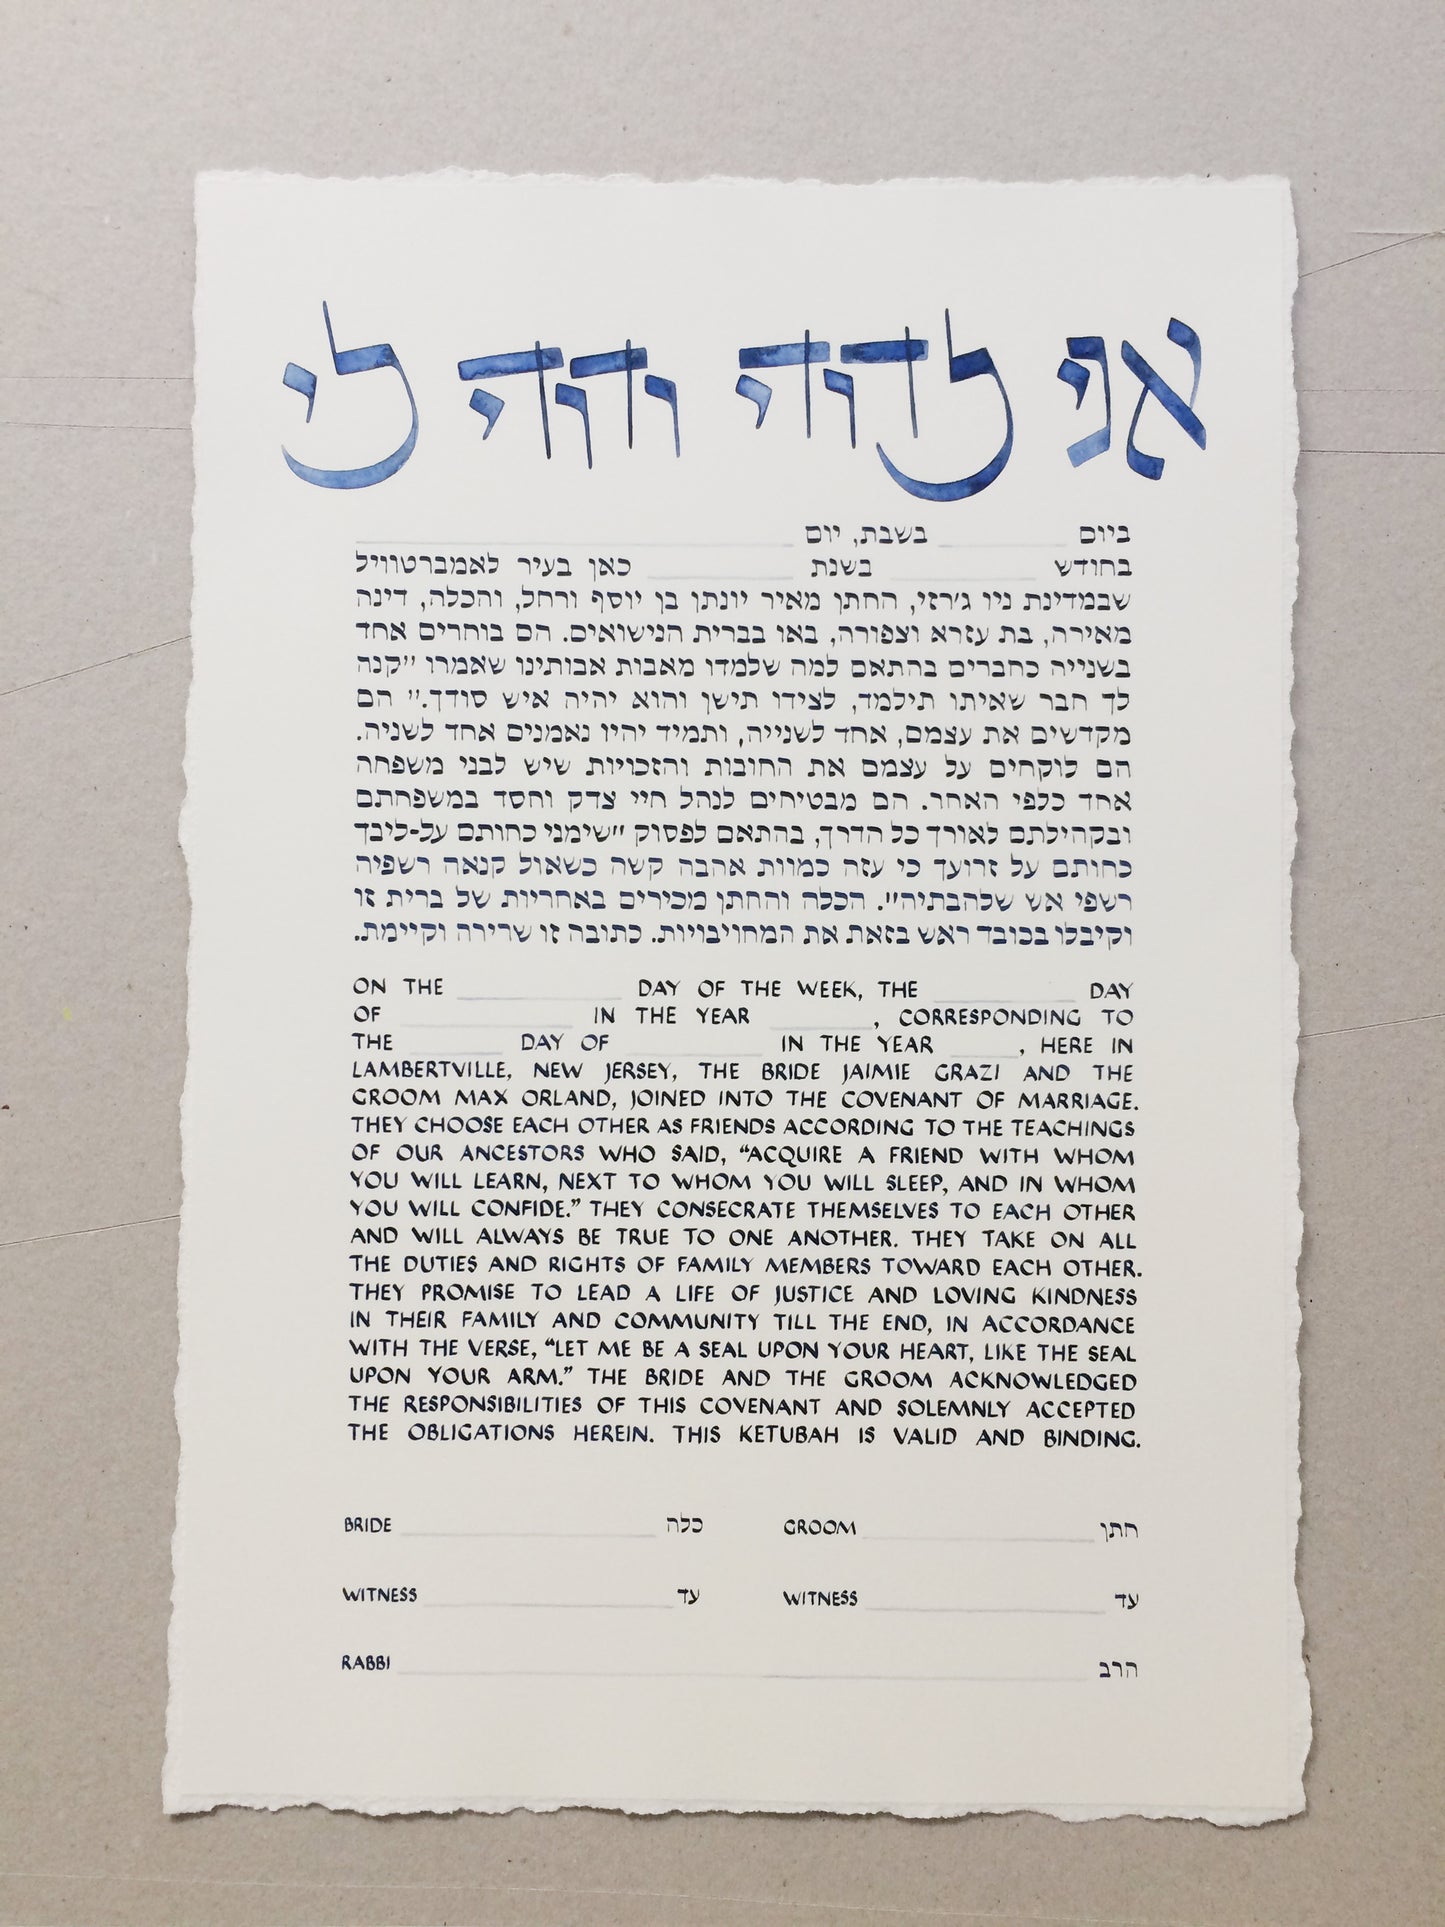 אני לדודי ודודי לי
ביום ________ בשבת, יום ________
בחודש ________ בשנת ________ כאן בעיר לאמברטוויל
שבמדינת ניו ג׳רזי, החתן מאיר יונתן בן יוסף ורחל, והכלה, דינה
מאירה, בת עזרא וצפורה, באו בברית הנישואים. הם בוחרים אחד
בשנייה כחברים בהתאם למה שלמדו מאבות אבותינו שאמרו ״קנה
לך חבר שאיתו תילמד, לצידו תישן והוא יהיה איש סודך.״ הם
מקדשים את עצמם, אחד לשנייה, ותמיד יהיו נאמנים אחד לשניה.
הם לוקחים על עצמם את החובות והזכויות שיש לבני משפחה
אחד כלפי האחר. הם מבטיחים לנהל חיי צדק וחסד במשפחתם
ובקהילתם לאורך כל הדרך, בהתאם לפסוק ״שימני כחותם על-ליבך
כחותם על זרועך כי עזה כמוות אהבה קשה כשאול קנאה רשפיה
רשפי אש שלהבתיה״. הכלה והחתן מכירים באחריות של ברית זו
וקיבלו בכובד ראש בזאת את המחויבויות. כתובה זו שרירה וקיימת.
ON THE ________ DAY OF THE WEEK, THE ________ DAY
OF ________ IN THE YEAR ________, CORRESPONDING TO
THE ________ DAY OF ________ IN THE YEAR ________, HERE IN
LAMBERTVILLE, NEW JERSEY, THE BRIDE JAIMIE GRAZI AND THE
GROOM MAX ORLAND, JOINED INTO THE COVENANT OF MARRIAGE.
THEY CHOOSE EACH OTHER AS FRIENDS ACCORDING TO THE TEACHINGS
OF OUR ANCESTORS WHO SAID, “ACQUIRE A FRIEND WITH WHOM
YOU WILL LEARN, NEXT TO WHOM YOU WILL SLEEP, AND IN WHOM
YOU WILL CONFIDE.” THEY CONSECRATE THEMSELVES TO EACH OTHER
AND WILL ALWAYS BE TRUE TO ONE ANOTHER. THEY TAKE ON ALL
THE DUTIES AND RIGHTS OF FAMILY MEMBERS TOWARD EACH OTHER.
THEY PROMISE TO LEAD A LIFE OF JUSTICE AND LOVING KINDNESS
IN THEIR FAMILY AND COMMUNITY TILL THE END, IN ACCORDANCE
WITH THE VERSE, “LET ME BE A SEAL UPON YOUR HEART, LIKE THE SEAL
UPON YOUR ARM.” THE BRIDE AND THE GROOM ACKNOWLEDGED
THE RESPONSIBILITIES OF THIS COVENANT AND SOLEMNLY ACCEPTED
THE OBLIGATIONS HEREIN. THIS KETUBAH IS VALID AND BINDING.
BRIDE ________ כלה GROOM ________ חתן
WITNESS ________ עד WITNESS ________ עד
RABBI ________ הרב